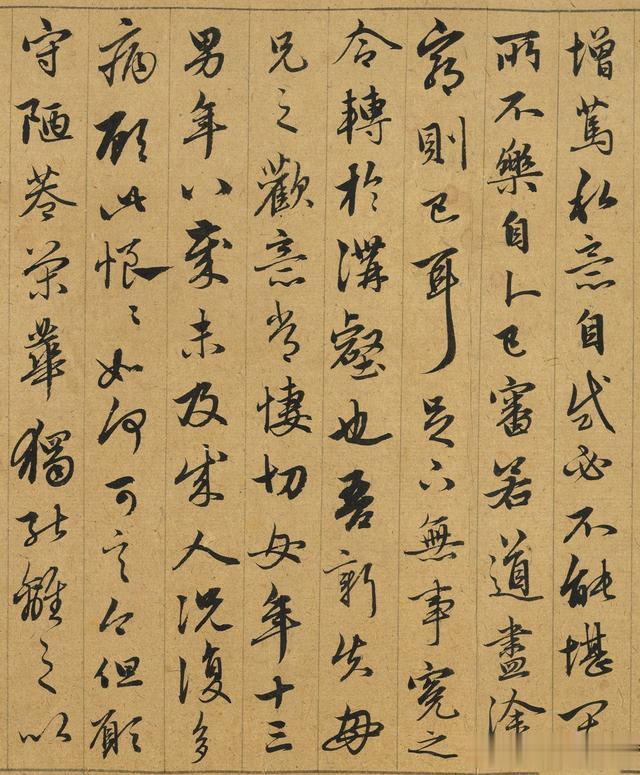 增篤私意自試必不能堪其
所不樂自卜已審若道盡塗
窮則已耳足下無事冤之
令轉於溝壑也吾新失母
兄之歡意常悽切女年十三
男年八歲未及成人況復多
病顧此恨々如何可言今但願
守陋巷榮華獨能離之以